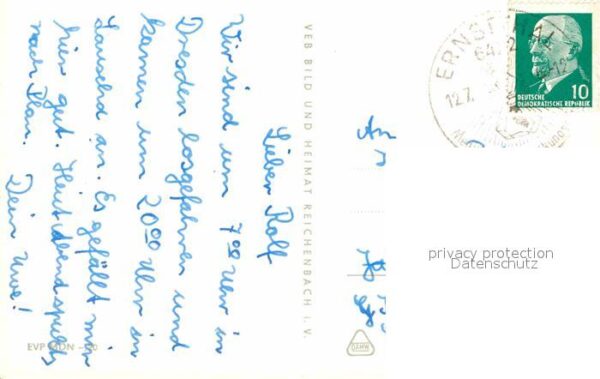 Lieber Rolf
Wir sind um 7⁰⁰ Uhr in
Dresden losgefahren und
kamen um 20⁰⁰ Uhr in
an. Es gefällt mir
hier gut. Heut abend
nach Plan.
Dein Uwe!
VEB BILD UND HEIMAT REICHENBACH i. V.
EVP MDN
ERNST
642
12.7.
DEUTSCHE
DEMOKRATISCHE REPUBLIK
10
privacy protection
Datenschutz